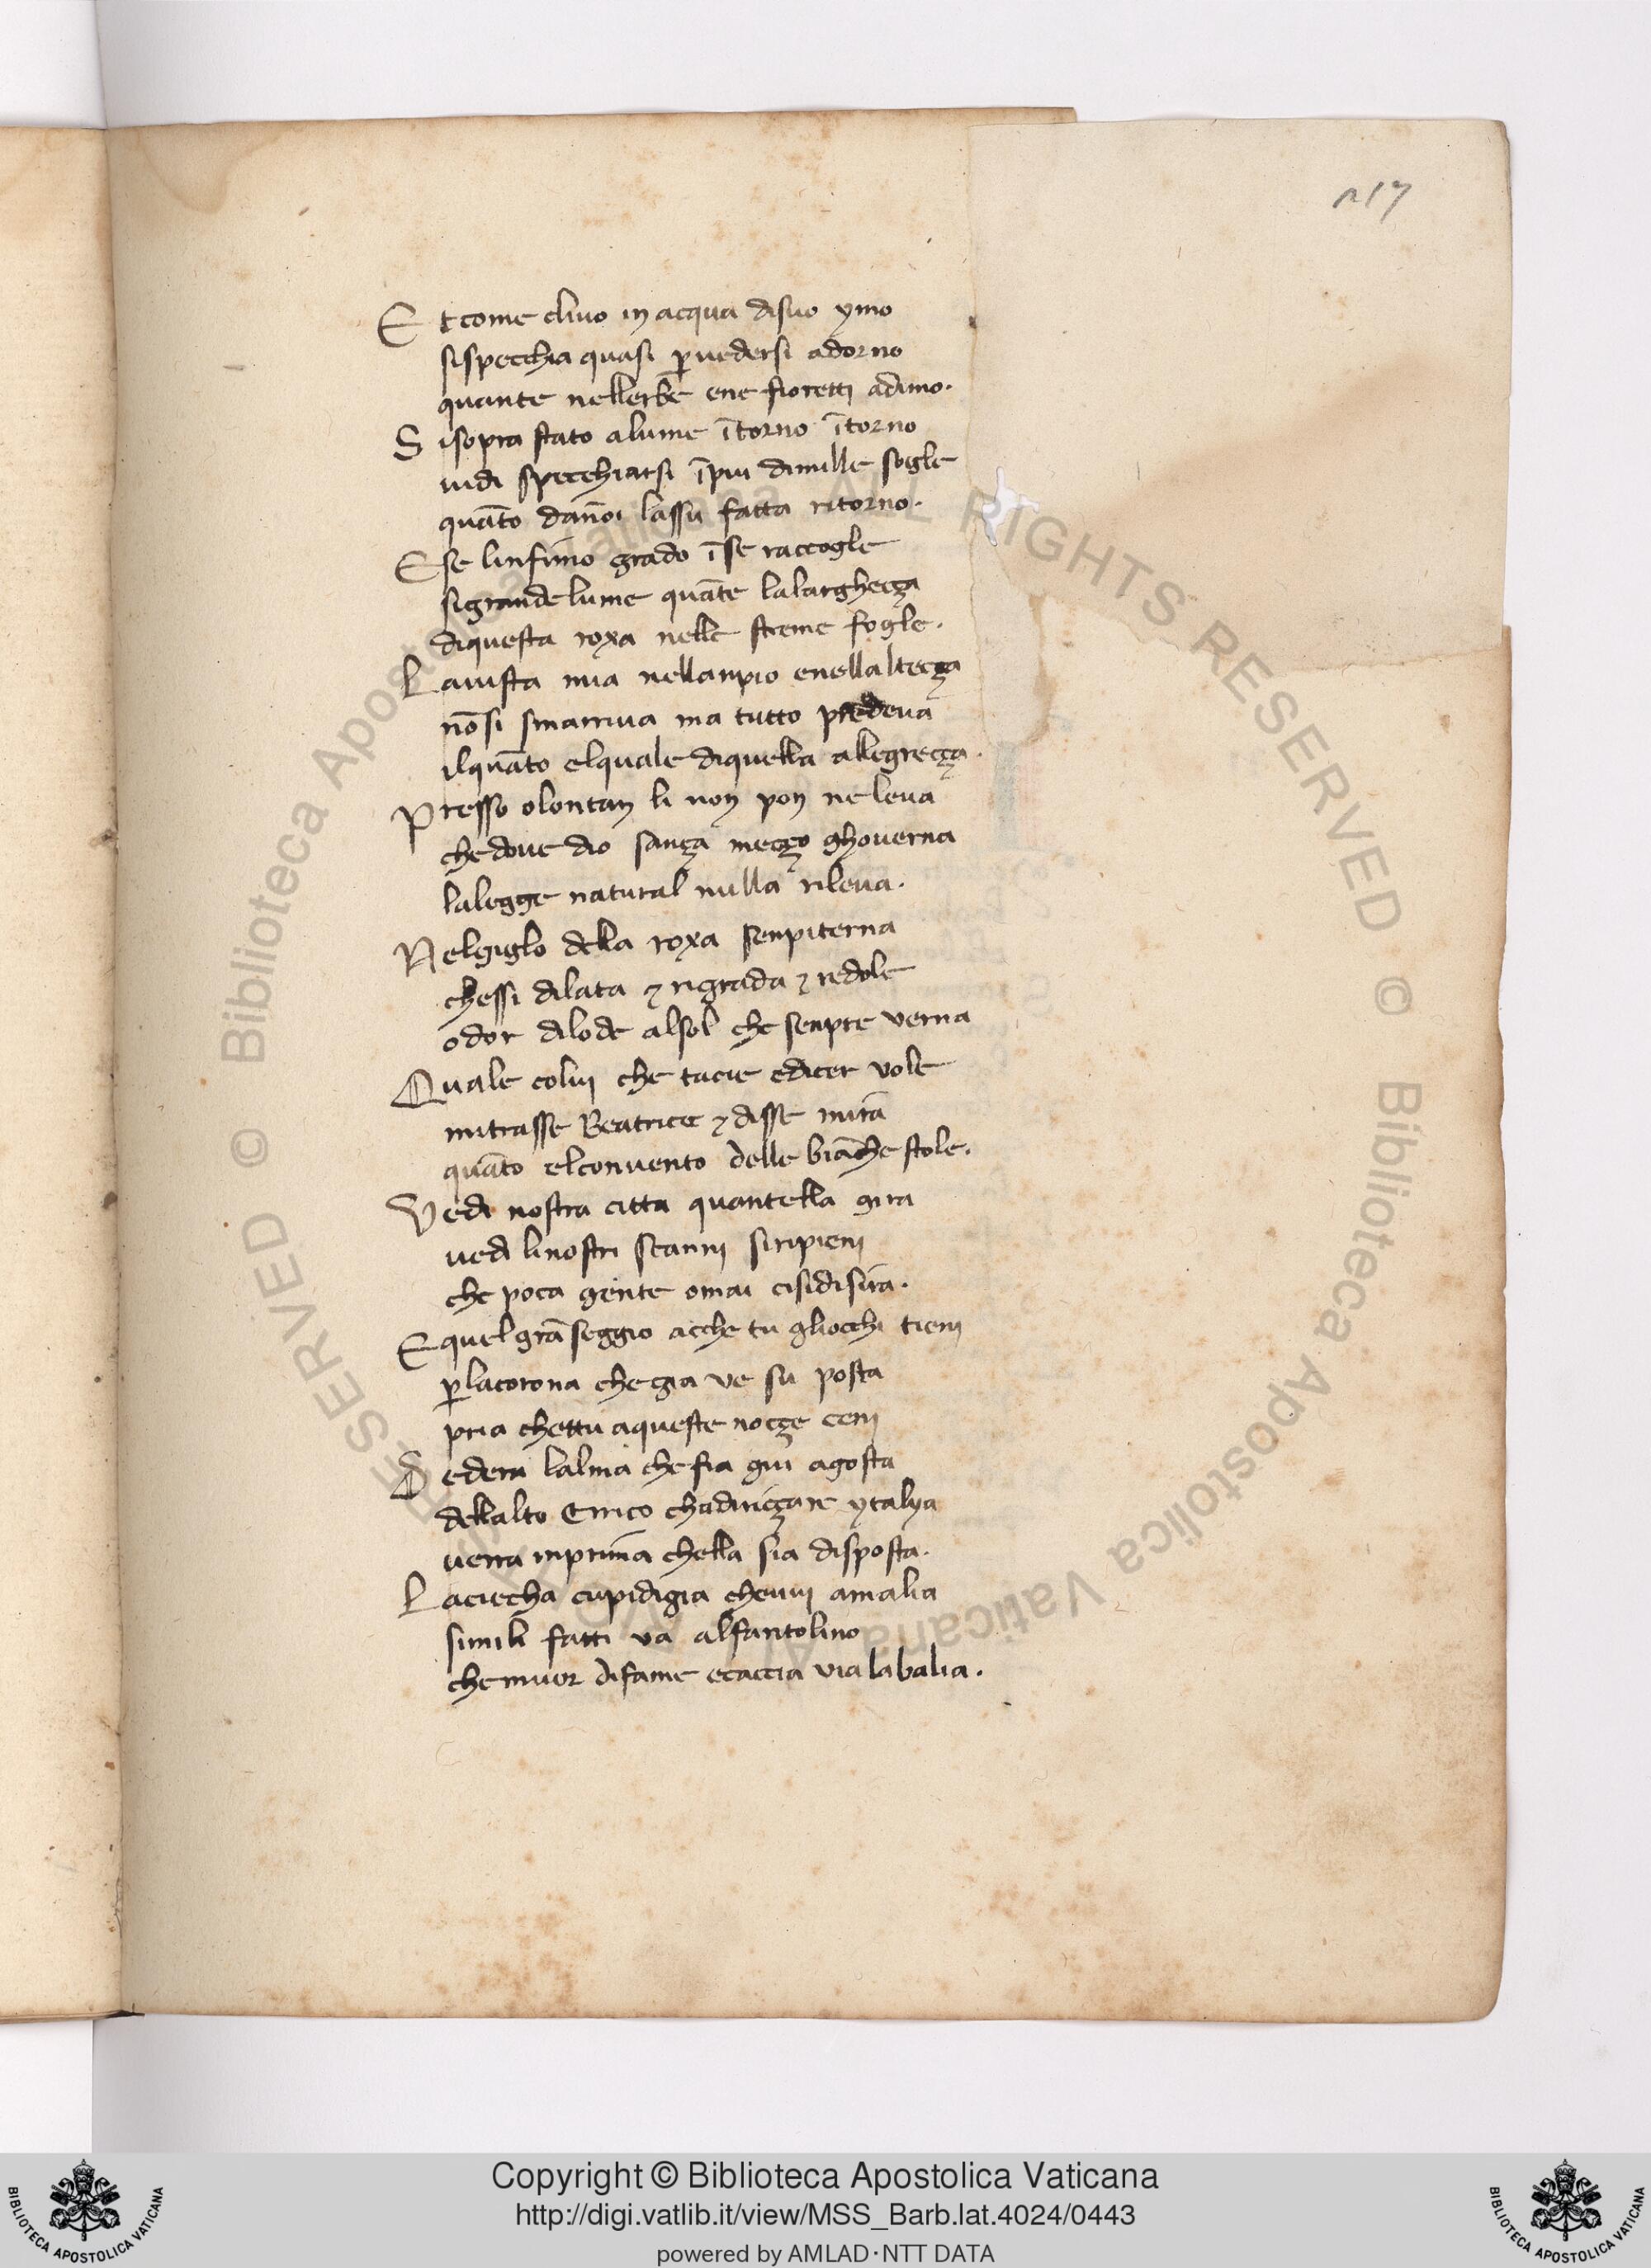 217
Et come clivo in acqua disuo ymo
sispecchia quasi p̲uedersi adorno
quante nellerbe ene fioretti adimo.
Sisopra stato alume ītorno ītorno
uidi specchiarsi īpiu dimille sogle
quāto danoi lassu fatta ritorno.
Ese linfimo grado īse raccogle
sigrande lume quāte lalarghecça
diquesta roxa nelle streme fogle.
Lauista mia nellanpio enellaltecça
nōsi smarriua ma tutto predeua
ilquāto elquale diquella allegrecça.
Presso olontan li non pon ne leua
che doue dio sança mecço ghouerna
lalegge natural nulla rileua.
Nelgiglo della roxa senpiterna
chessi dilata ⁊ rigrada ⁊ redole
odor dilode alsol che senpre verna
Quale colui che tacie edicer vole
mitrasse Beatrice ⁊ disse mira
quāto elconuento delle biāche stole.
Vedi nostra citta quantella gira
uedi linostri scanni siripieni
che poca gente omai cisidisira.
Equel grā seggio acche tu gliocchi tieni
p̲lacorona che gia ve su posta
pria chettu aqueste nocçe ceni
Sedera lalma che fia giu agosta
dellalto Errico chadiricçare ytalya
uerra inprima chella sia disposta.
Laciecha cupidigia cheuui amalia
simili fatti va alfantolino
che muor difame ecaccia via labalia.
© Biblioteca Apostolica Vaticana ALL RIGHTS RESERVED
Copyright © Biblioteca Apostolica Vaticana
http://digi.vatlib.it/view/MSS_Barb.lat.4024/0443
powered by AMLAD·NTT DATA
BIBLIOTECA APOSTOLICA VATICANA
BIBLIOTECA APOSTOLICA VATICANA